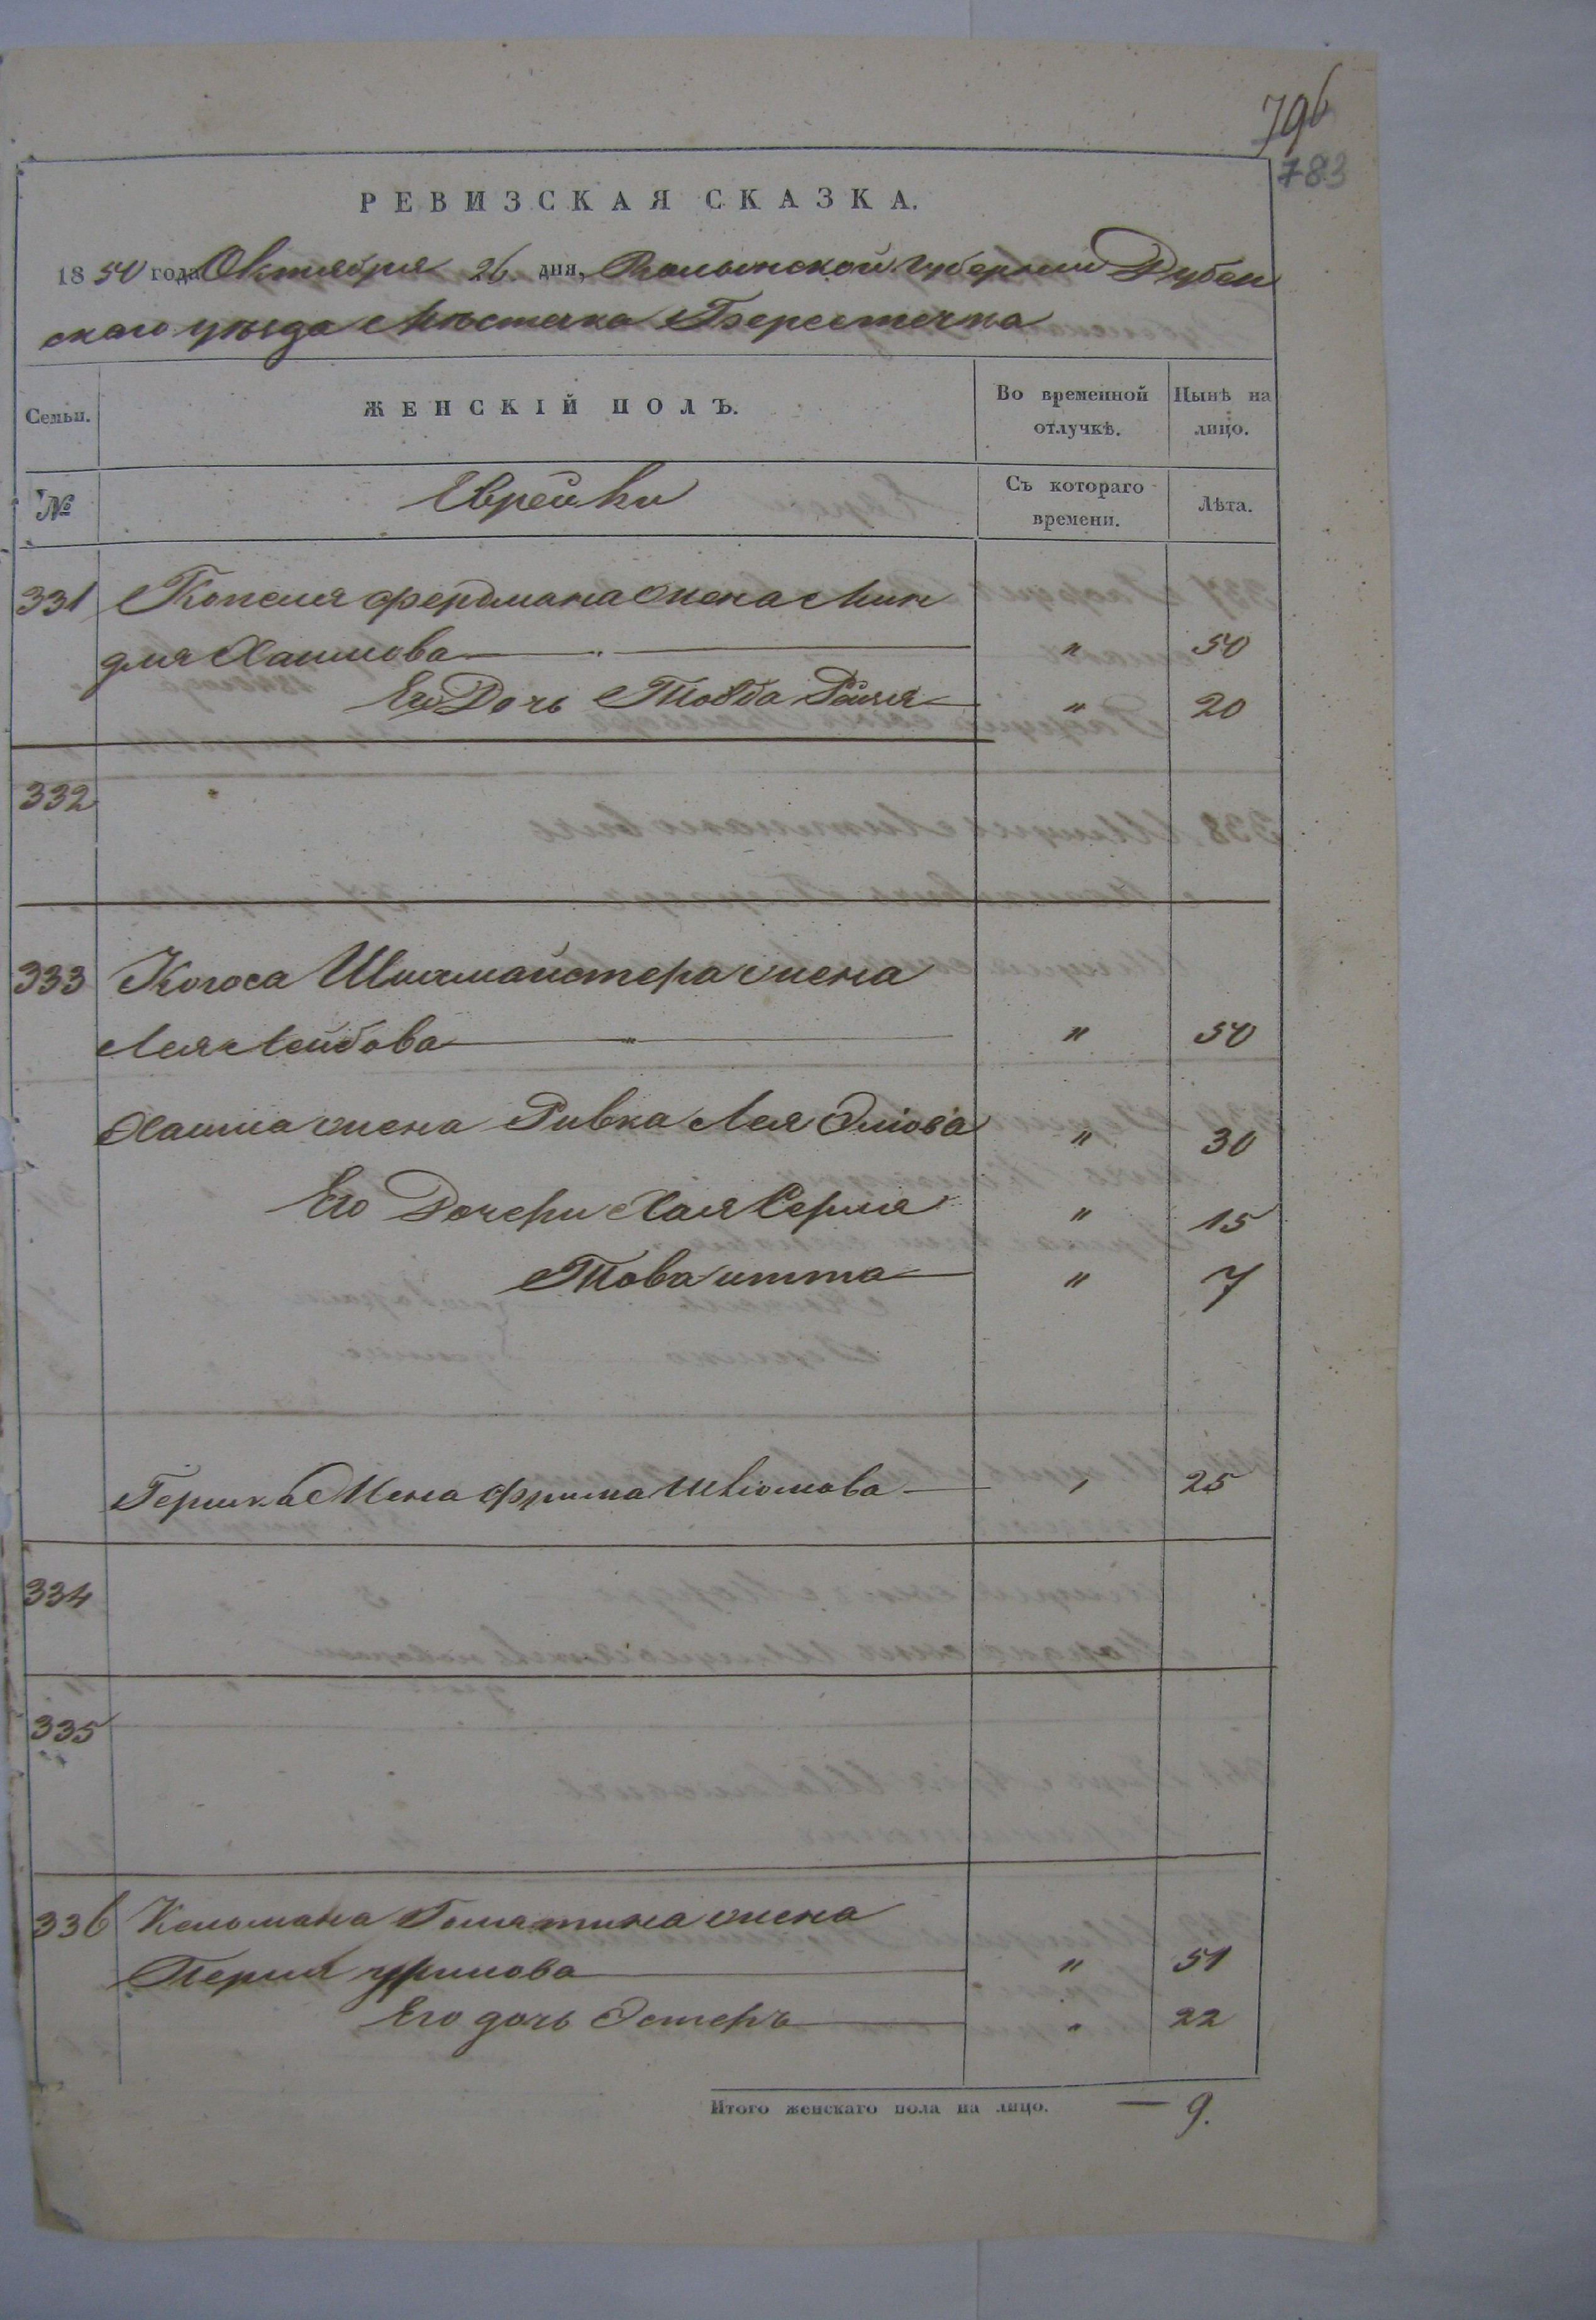 796
783
РЕВИЗСКАЯ СКАЗКА.
1850 года Октября 26 дня, Волынской губернии Дубен
скаго уѣзда Мѣстечка Берестечка
Семьи. ЖЕНСКІЙ ПОЛЪ. Во временной отлучкѣ. Нынѣ на лицо.
№ Еврейки Съ котораго времени. Лѣта.
331 Копеля Фердмана жена Мин
для Хаимова " 50
Его Дочь Товба Рейзя " 20
332
333 Когоса Шлимайстера жена
Лея Лейбова " 50
Хаима жена Ривка Лея Эліова " 30
Его Дочери Хая Серля " 15
Това итта " 7
Гершка Жена Фрима Шліомова " 25
334
335
336 Кельмана жена
Перля Уринова " 51
Его дочь Эстеръ " 22
Итого женскаго пола на лицо. — 9.